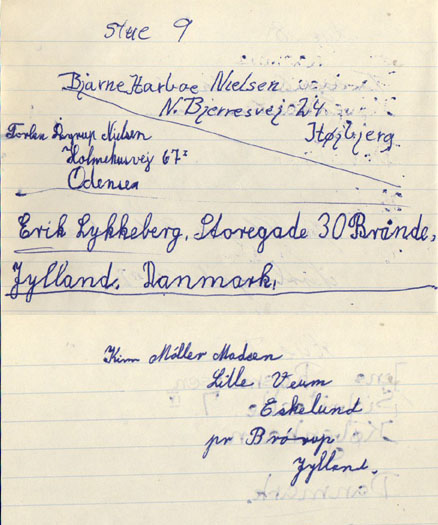 stue 9
Bjarne Harboe Nielsen
N. Bjerresvej 24
Højbjerg
Torben Nielsen
Holmehusvej 67¹
Odense
Erik Lykkeberg, Storegade 30 Brände,
Jylland. Danmark,
Kim Möller Madsen
Lille Veum
Eskelund
pr Brörup
Jylland.